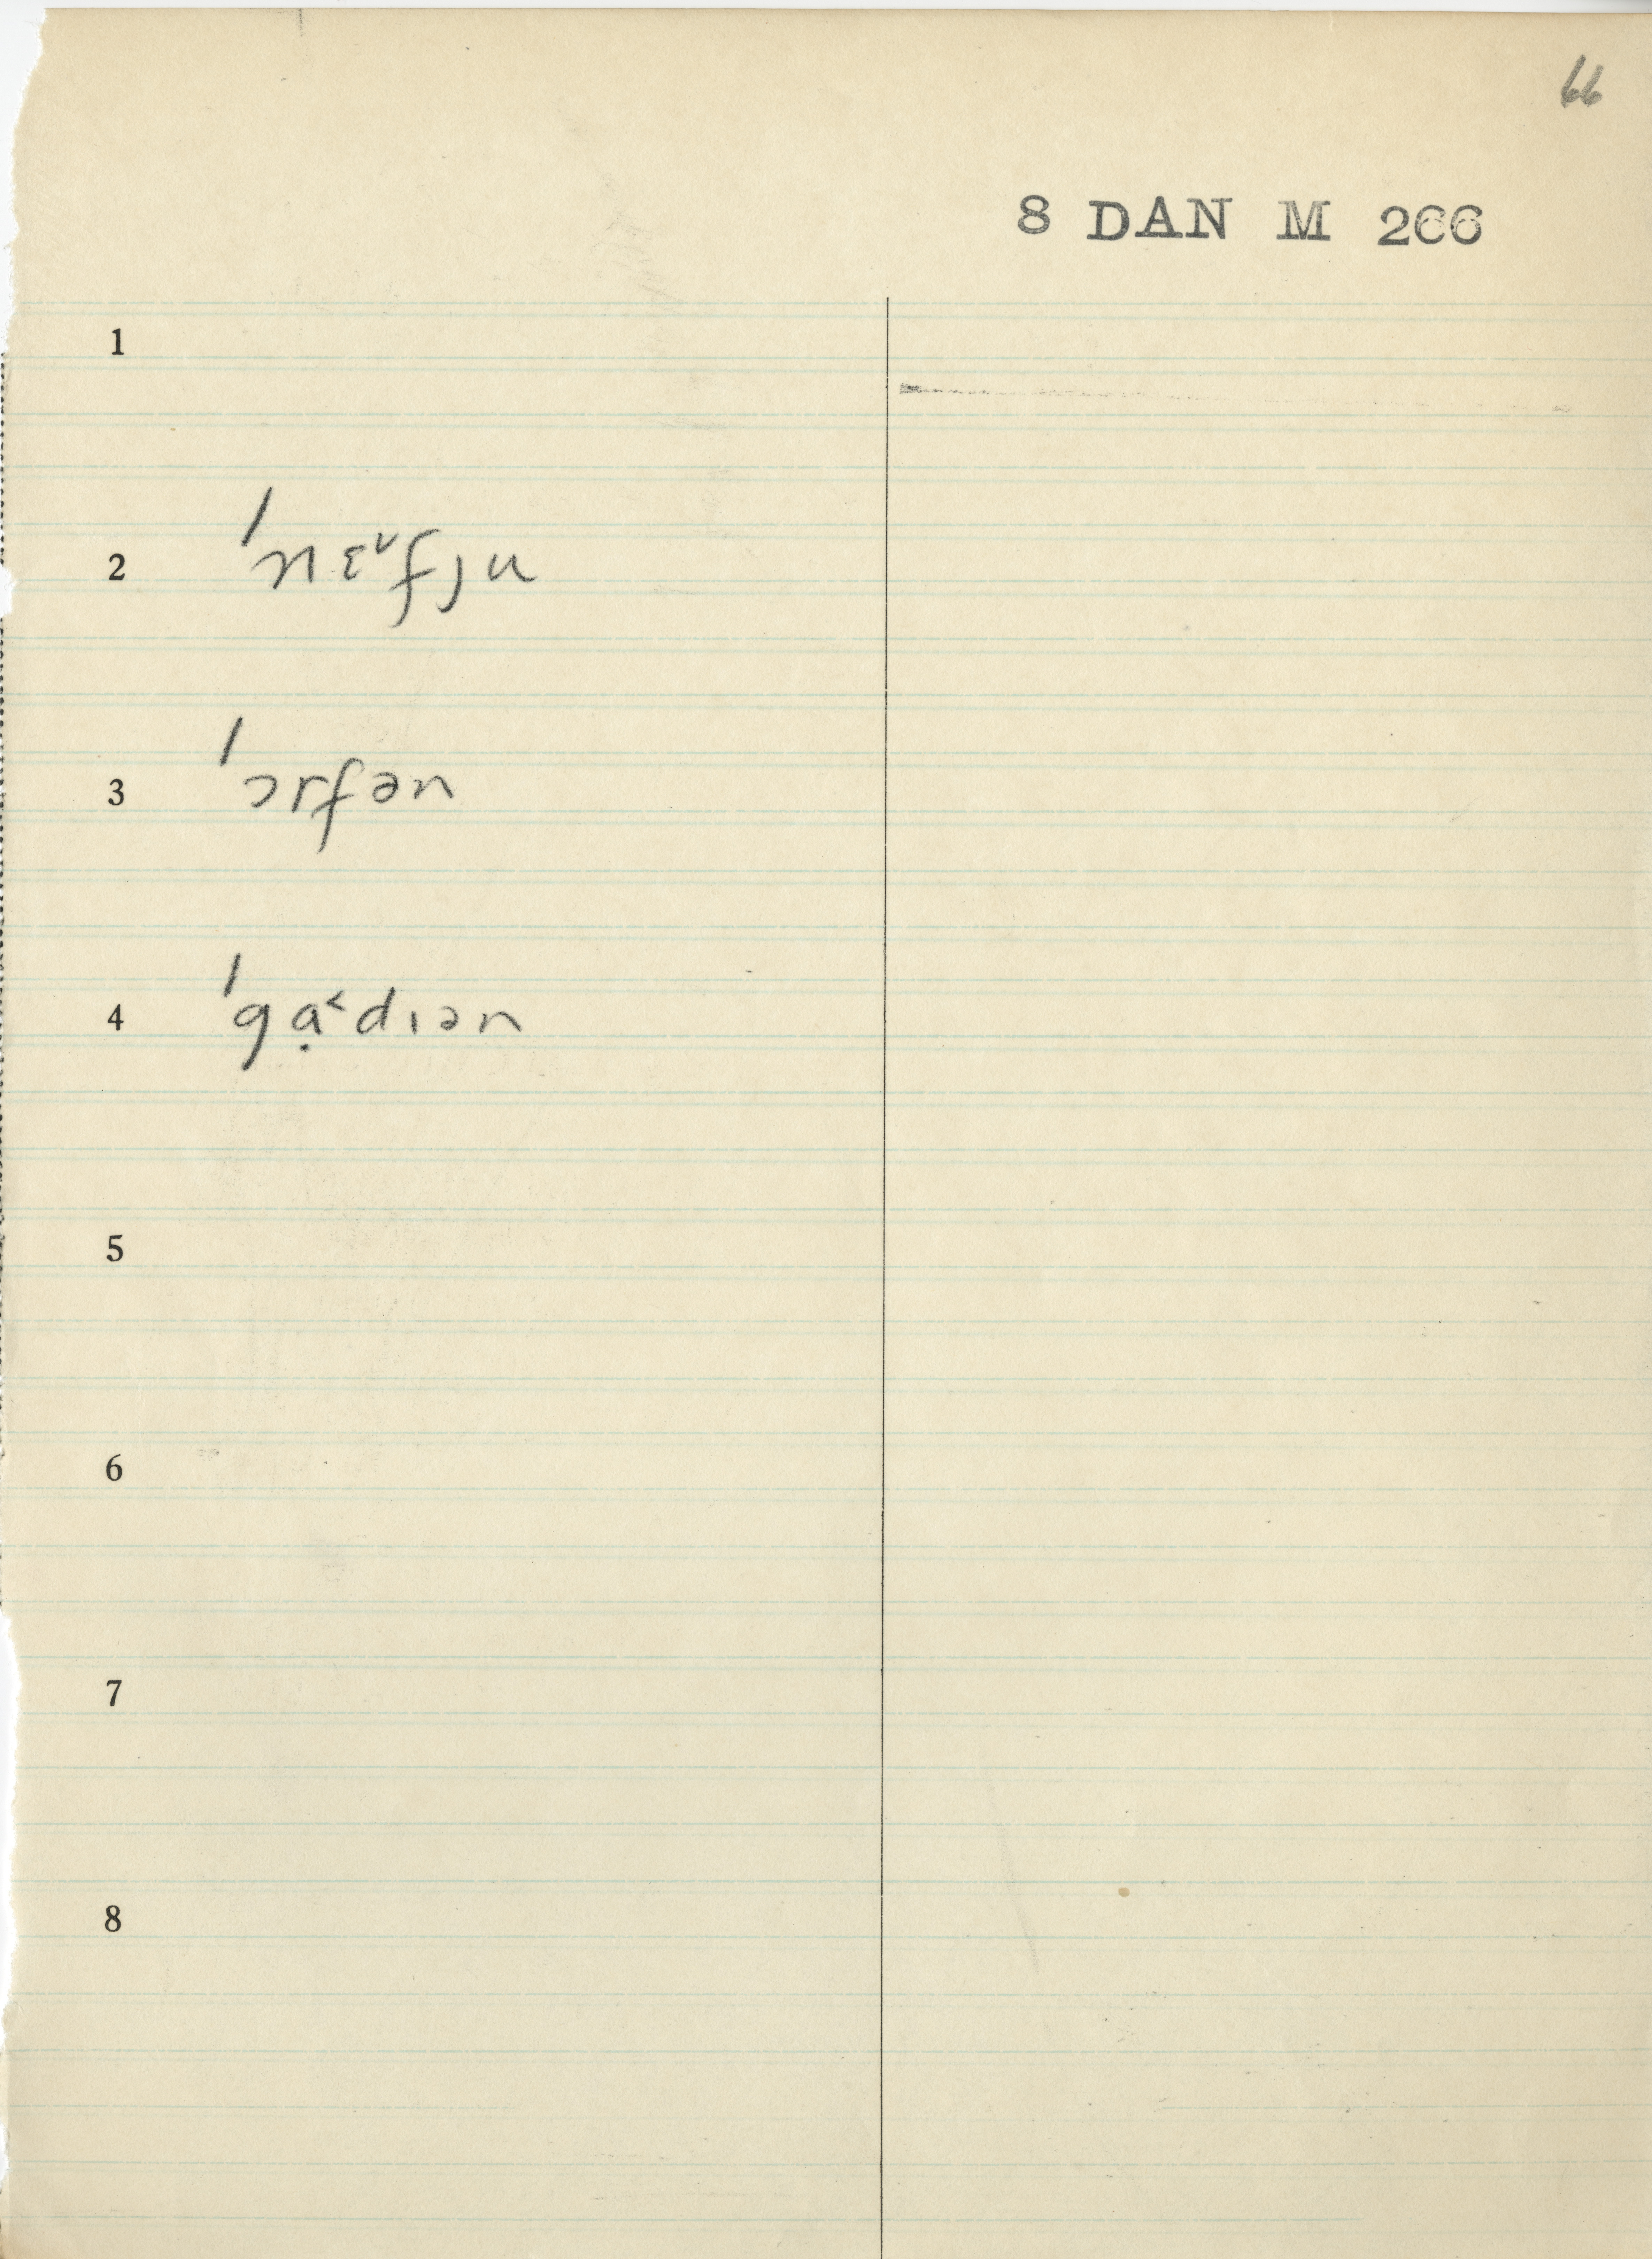 66
8 DAN M 266
1
2 ˈnɛ˅fju
3 ˈɔrfən
4 ˈgɑ̣˂dɪən
5
6
7
8